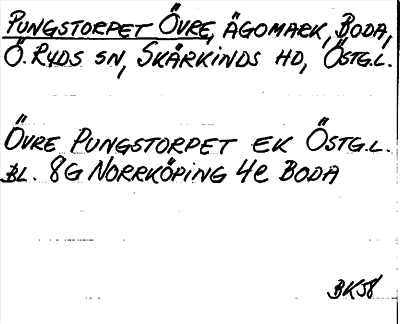 PUNGSTORPET ÖVRE, ÄGOMARK, BODA,
Ö. RYDS SN, SKÄRKINDS HD, ÖSTG.L.
ÖVRE PUNGSTORPET EK ÖSTG.L.
BL. 8G NORRKÖPING 4e BODA
BK58